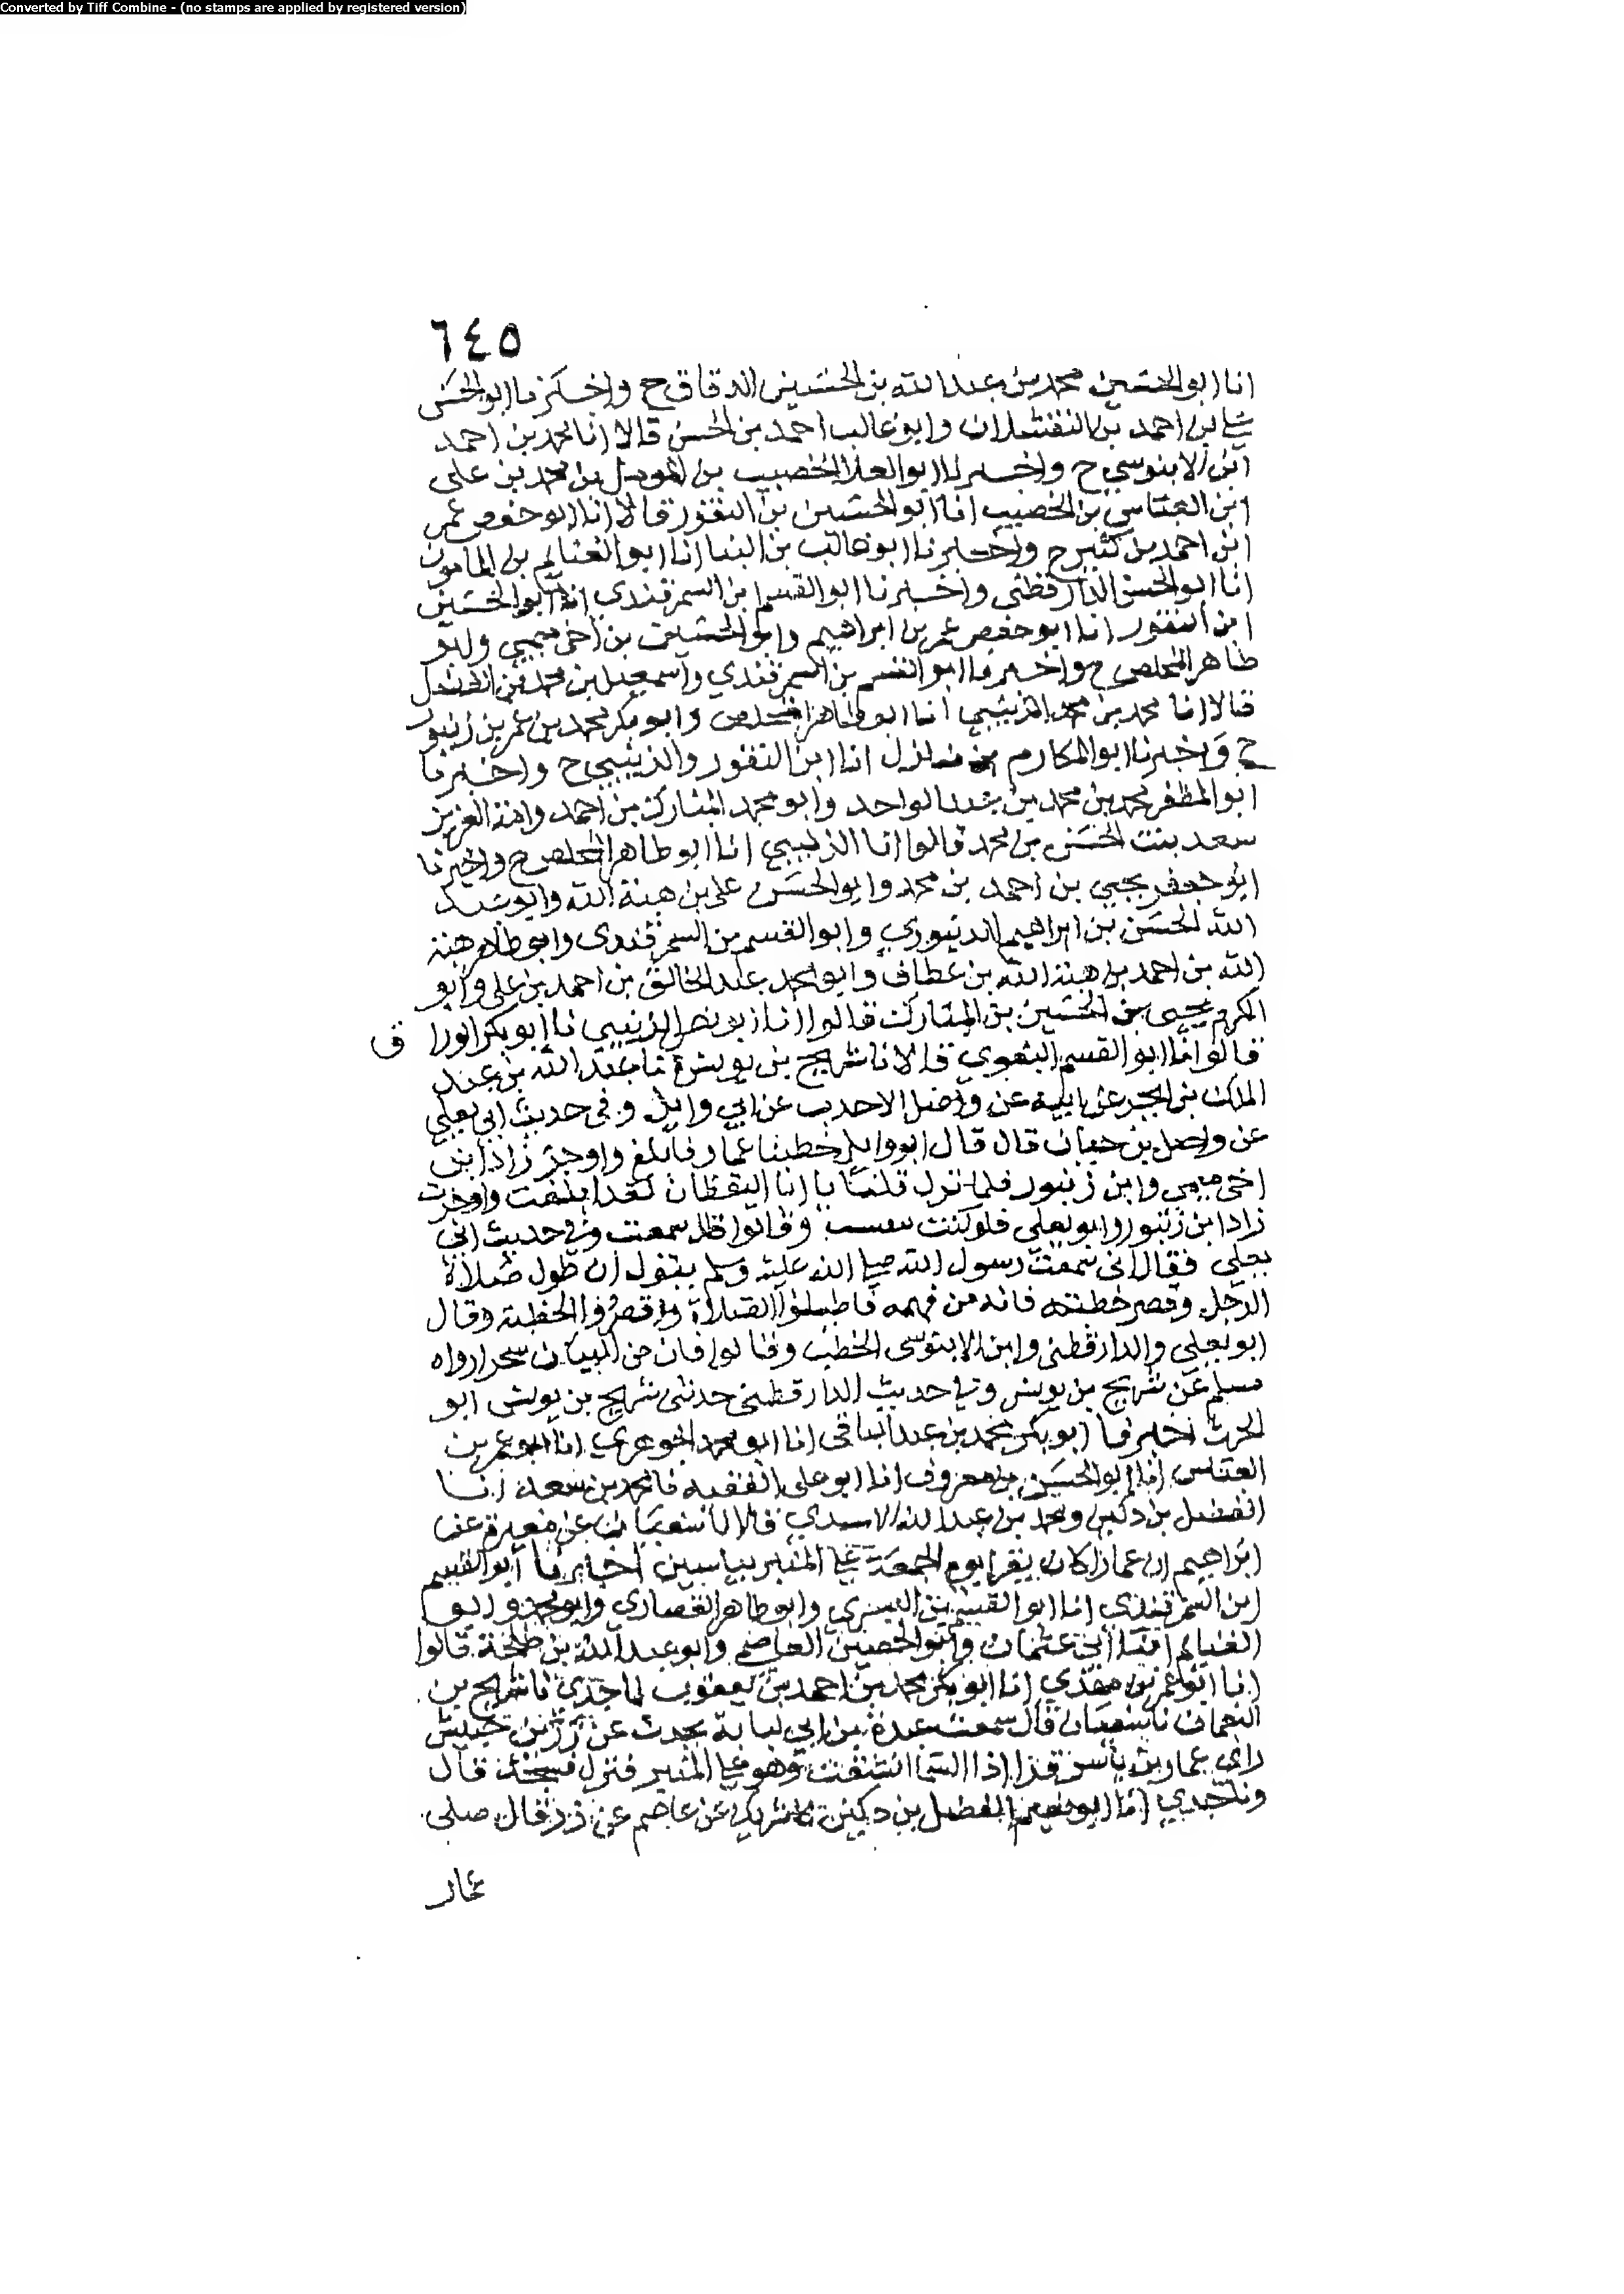 Converted by Tiff Combine - (no stamps are applied by registered version)
٦٤٥
انا ابو الحسين محمد بن عبد الله بن الحسين الدقاق ح واخبرنا ابو الحسن
علي بن احمد بن البقشلان وابو غالب احمد بن الحسن قالا انا محمد بن احمد
ابن الابنوسي ح واخبرنا ابو العلا الخصيب بن المومل بن محمد بن علي
ابن العباس بن الخصيب انا ابو الحسين بن النقور قالا انا ابو حفص عمر
ابن احمد بن كثير ح واخبرنا ابو غالب بن البنا انا ابو الغنايم بن المامون
انا ابو الحسن الدارقطني واخبرنا ابو القسم بن السمرقندي انا ابو الحسين
ابن النقور انا ابو حفص عمر بن ابراهيم وابو الحسين بن اخي ميمي وابو
طاهر المخلص ح واخبرنا ابو القسم بن السمرقندي واسمعيل بن محمد بن الفضل
قالا انا محمد بن محمد الزينبي انا ابو طاهر المخلص وابو بكر محمد بن عمر بن زنبور
ح واخبرنا ابو المكارم انا ابن النقور والزينبي ح واخبرنا
ابو المظفر محمد بن محمد بن عبد الواحد وابو محمد المبارك بن احمد وامة العزيز
سعد بنت الحسن بن محمد قالوا انا الزينبي انا ابو طاهر المخلص ح واخبرنا
ابو جعفر يحيى بن احمد بن محمد وابو الحسن علي بن هبة الله وابو عبد
الله الحسن بن ابراهيم الدينوري وابو القسم بن السمرقندي وابو طاهر هبة
الله بن احمد بن هبة الله بن عطاف وابو محمد عبد الخالق بن احمد بن علي وابو
الكرم يحيى بن الحسين بن المبارك قالوا انا ابو نصر الزينبي نا ابو بكر الورا ق
قالوا انا ابو القسم البغوي قالا نا سريج بن يونس نا عبد الله بن عبد
الملك بن ابجر عن ابيه عن واصل الاحدب عن ابي وايل وفي حديث ابي يعلى
عن واصل بن حيان قال قال ابو وايل خطبنا عمار فابلغ واوجز زاد ابن
اخي ميمي وابن زنبور فلما نزل قلنا يا ابا اليقظان لقد ابلغت واوجزت
زاد ابن زنبور وابو يعلى فلو كنت وقالوا سمعت وفي حديث ابي
يعلى فقال اني سمعت رسول الله صلى الله عليه وسلم يقول ان طول صلاة
الرجل وقصر خطبته فانه من فهمه فاطيلوا الصلاة واقصروا الخطبة وقال
ابو يعلى والدارقطني وابن الابنوسي الخطب وقالوا فان من البيان سحرا رواه
مسلم عن سريج بن يونس وفي حديث الدارقطني حدثني سريج بن يونس ابو
الحرث اخبرنا ابو بكر محمد بن عبد الباقي انا ابو محمد الجوهري انا ابو عمر بن
العباس انا ابو الحسن بن معروف انا ابو علي الفقيه نا محمد بن سعد انا
الفضل بن دكين ومحمد بن عبد الله الاسدي قالا نا سفيان عن مغيرة عن
ابراهيم ان عمارا كان يقرا يوم الجمعة على المنبر بياسين اخبرنا ابو القسم
ابن السمرقندي انا ابو القسم بن البسري وابو طاهر القصاري وابو محمد وابو
الغنايم ابنا ابي عثمان وابو الحصين العاصم وابو عبد الله بن طلحة قالوا
انا ابو عمر بن مهدي انا ابو بكر محمد بن احمد بن يعقوب نا جدي نا سريج بن
النعمان نا سفيان قال سمعت عبدة بن ابي لبابة يحدث عن زر بن حبيش
راى عمار بن ياسر قرا اذا السما انشقت وهو على المنبر فنزل فسجد قال
ونا جدي انا ابو نعيم الفضل بن دكين نا شريك عن عاصم عن زر قال صلى
عمار